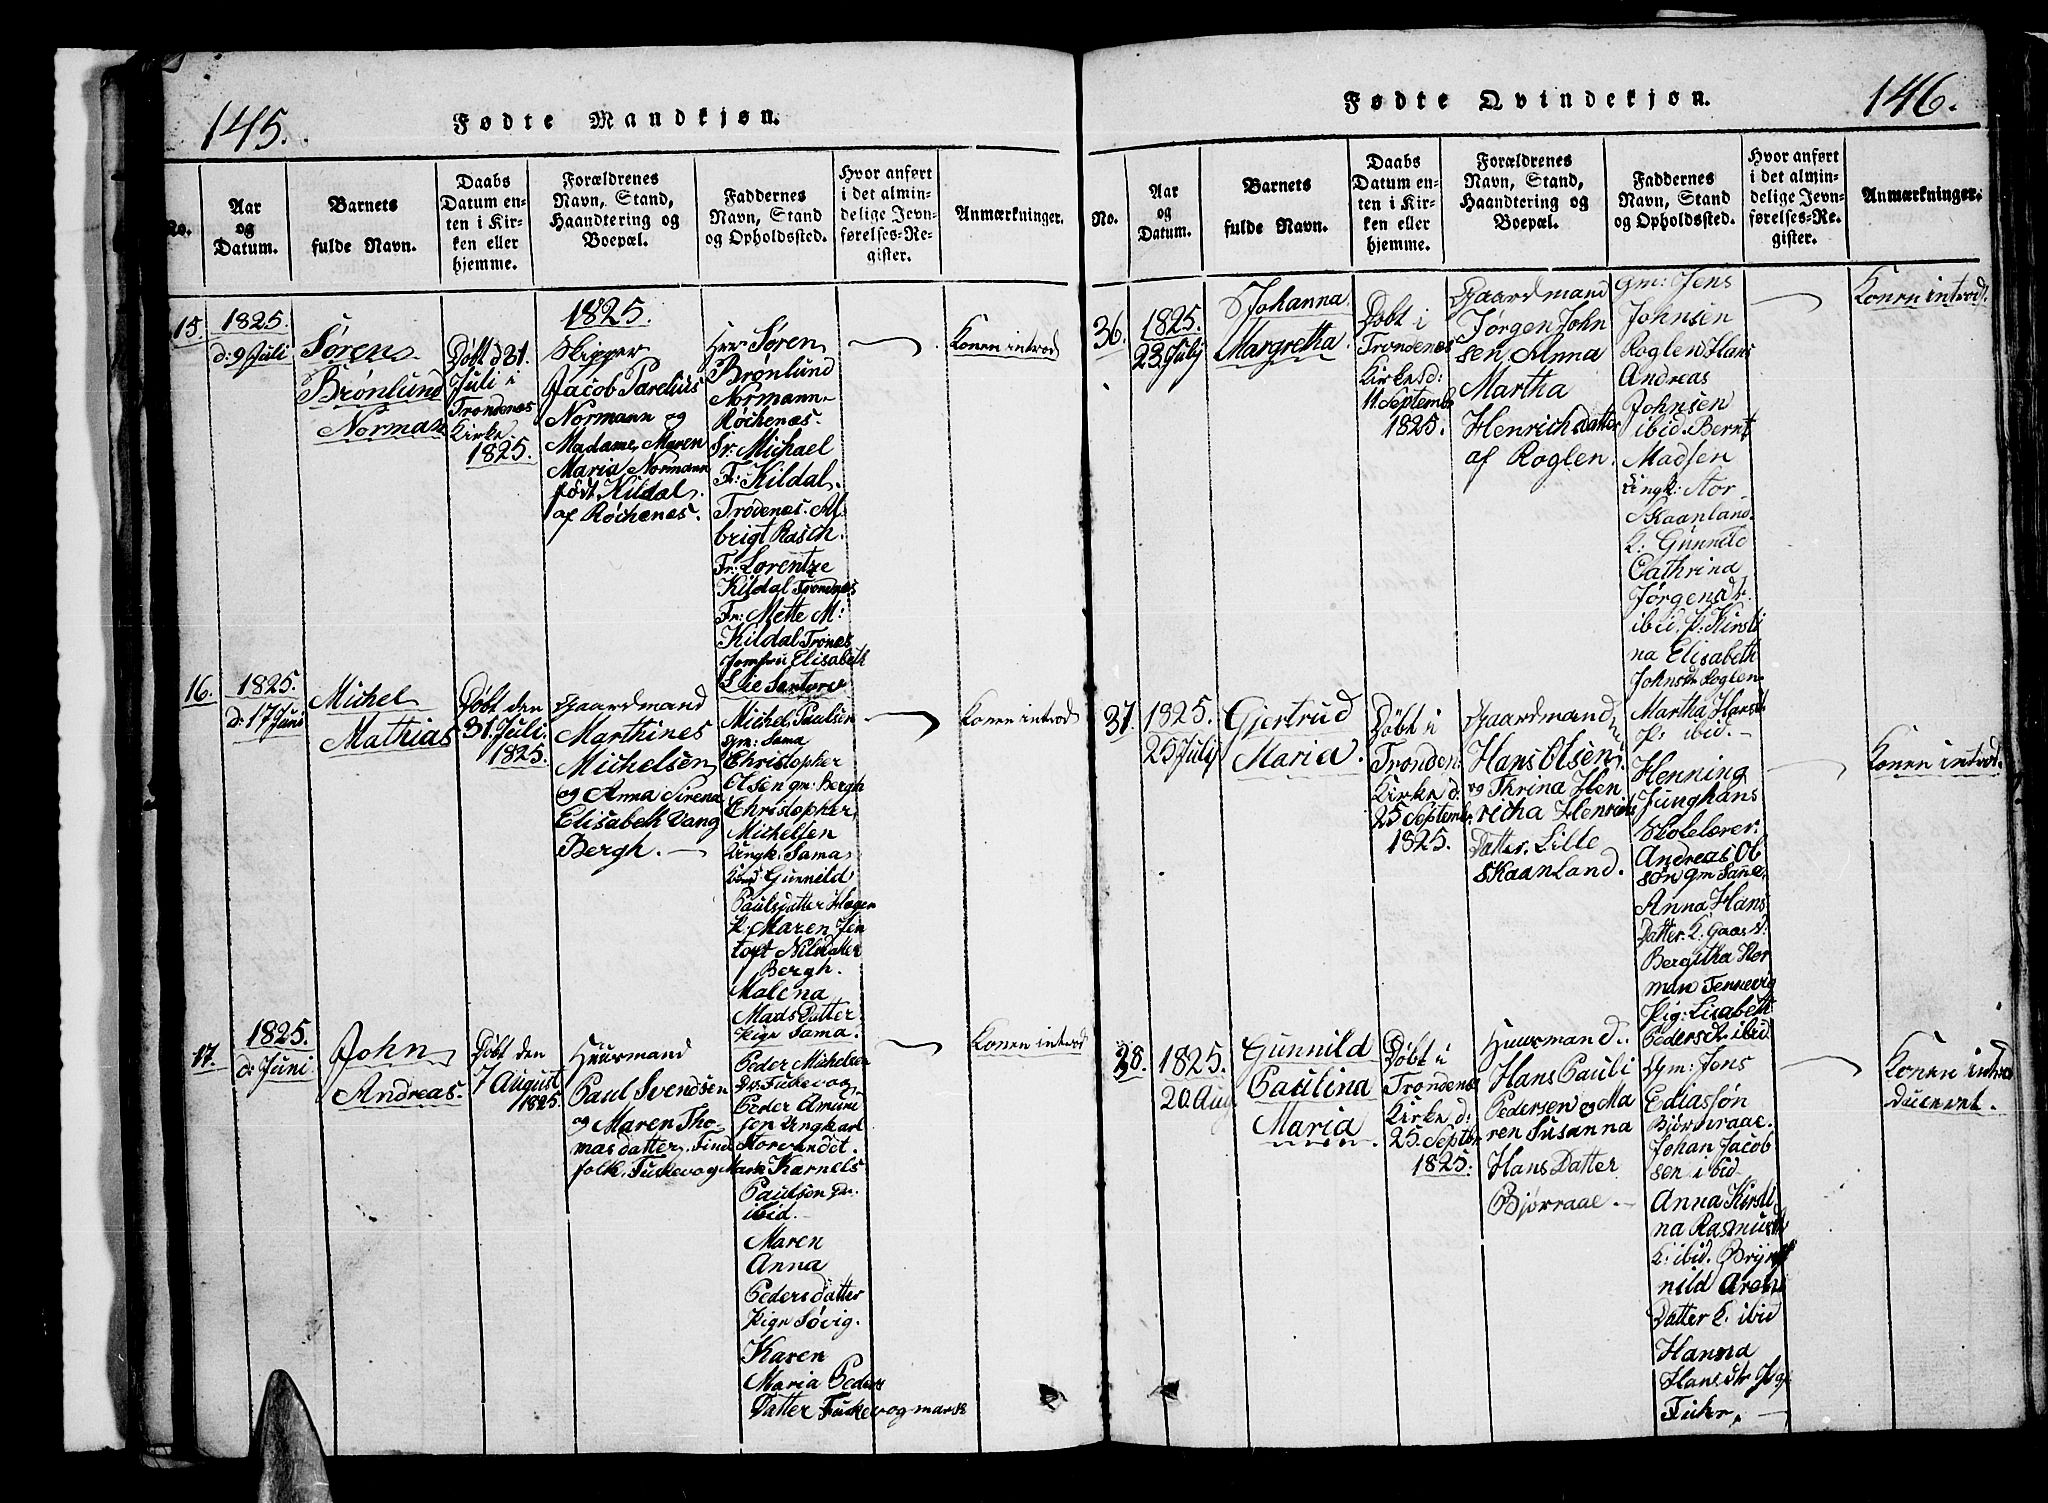 145.
Fødte Mandkjøn.
No.
Aar
og
Datum.
Barnets
fulde Navn.
Daabs
Datum en-
ten i Kir-
ken eller
hjemme.
Forældrenes
Navn, Stand,
Haandtering og
Boepæl.
Faddernes
Navn, Stand
og Opholdssted.
Hvor anført
i det almin-
delige Jevn-
førelses-Re-
gister.
Anmærkninger.
15.
1825.
d: 9 Juli
Søren
Brønlund
Norman
Døbt d 31.
Juli i
Trondenæs
Kirke
1825.
1825.
Skipper
Jacob Parelius
Normann og
Madame Maren
Maria Normann
født Kildal
af Røchenæs.
Herr Søren
Brønlund
Normann
Røchenæs.
Sr: Michael
Fr: Kildal.
Trødenæs. Al-
brigt Rasch.
Fr: Lorentze
Kildal Trondnæs
Fr: Mette M:
Kildal Tronæs
Jomfru Elisabeth
Lie Santorv
Konen introd
16.
1825.
d: 17 Juni
Michel
Mathias
Døbt den
31. Juli.
1825.
Gaardmand
Marthines
Michelsen
og Anna Sirena
Elisabeth Vang
Bergh.
Michel Paulsen
gm: Sama
Christopher
Olsen gm: Bergh
Christopher
Michelsen
Ungk. Sama
Gunnild
Paulsdatter
K: Maren
Bergh.
Malena
Mads Datter
Pige Sama.
Konen introd
17.
1825.
d: Juni
John
Andreas.
Døbt den
7 August
1825.
Huusmand
Paul Svendsen
og Maren Tho-
masdatter, Find
folk.
Peder Michelsen
Peder Amuni
sen Ungkarl
Storvandet.
Karnels
Paulsen
ibid.
Maren
Anna
Pedersdatter
Pige Søvig.
Karen
Maria Peders
Datter
Konen introd
146.
Fødte Qvindekjøn.
No.
Aar
og
Datum.
Barnets
fulde Navn.
Daabs
Datum en-
ten i Kir-
ken eller
hjemme.
Forældrenes
Navn, Stand,
Haandtering og
Boepæl.
Faddernes
Navn, Stand
og Opholdssted.
Hvor anført
i det almin-
delige Jevn-
førelses-Re-
gister.
Anmærkninger.
36.
1825.
23 Julj
Johanna
Margretha
Døbt i
Trondenæs
Kirke d:
11. Septemb
1825.
Gaardmand
Jørgen John
sen, Anna
Martha
Henrichdatter
af Roglen.
gm: Jens
Johnsen
Roglen Hans
Andreas
Johnsen
ibid. Bernt
Madsen
Ungk: Stor
Skaanland.
K: Gunnild
Cathrina
Jørgensdr.
ibid. P: Kirsti
na Elisabeth
Johnsdr Roglen
Martha Hansdr
P: ibid.
Konen introd.
37.
1825.
25 Julj
Gjertrud
Maria
Døbt i
Tronden:
Kirke d:
25 September
1825.
Gaardmand
Hans Olsen
og Thrina Hen
richa Henrichs
Datter. Lille
Skaanland.
Henning
Junghans
Skolelærer.
Andreas Ol
søn gm Sane.
Anna Hans
Datter. K: Gaas V:
Bergitha Nor
man Tennevig
Pig: Lisabeth
Pedersdr ibid
Konen introd.
38.
1825.
20. Aug
Gunnild
Paulina
Maria
Døbt i
Trondenæs
Kirke d:
25. Septbr
1825.
Huusmand.
Hans Pauli
Pedersen og Ma
ren Susanna
Hans Datter
Bjørraae.
Gm: Jens
Ediassøn
Bjørnraae.
Johan Jacob
sen ibid
Anna Kirsti
na Rasmusdr
K: ibid.
Datter K. ibid
Hanna
Hansdtr Pige
Konen intro
duceret.